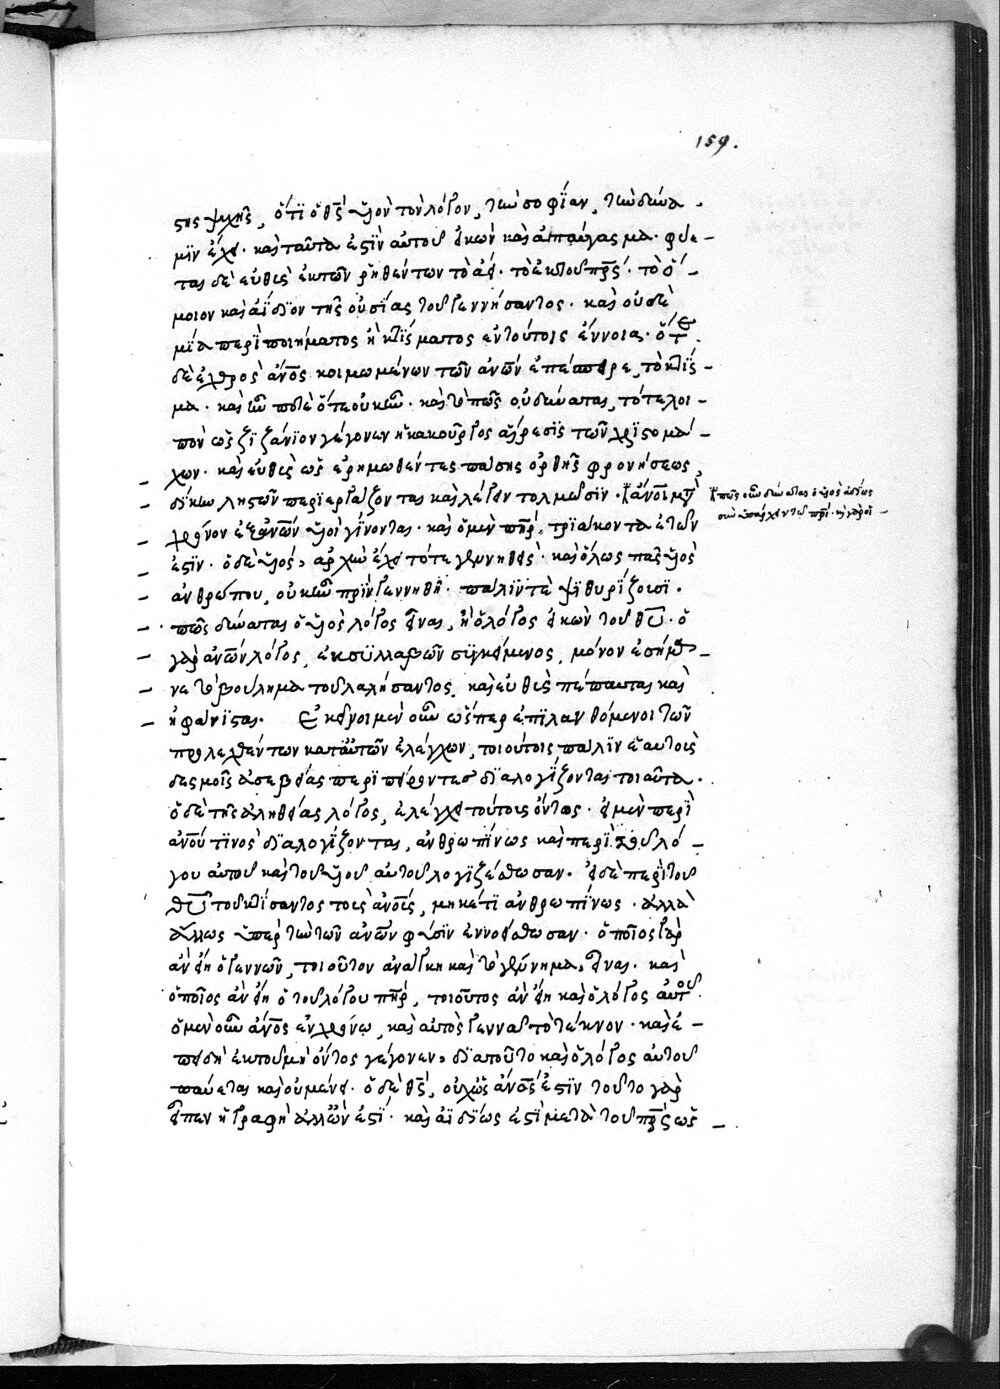 159.
της ψυχῆς, ὅτι ὁ θς υἱὸν τὸν λόγον, τὴν σοφίαν, τὴν δύνα
μιν ἔχει. καὶ ταῦτα ἐστὶν αὐτοῦ εἰκὼν καὶ ἀπαύγασμα. φύε-
ται δὲ εὐθὺς ἐκ τῶν ῥηθέντων τὸ ἀεὶ. τὸ ἐκ τοῦ πρς. τὸ ὅ-
μοιον καὶ ἀΐδιον τῆς οὐσίας τοῦ γεννήσαντος. καὶ οὐδε
μία περὶ ποιήματος ἢ κτίσματος ἐν τούτοις ἔννοια. ὅτε
δὲ ἐχθρὸς ἀνος κοιμωμένων τῶν ἀνων ἐπέσπειρε, τὸ κτίσ-
μα. καὶ ἦν ποτὲ ὅτε οὐκ ἦν. καὶ τὸ πῶς οὐ δύναται, τότε λοι-
πὸν ὡς ζιζάνιον γέγονεν ἡ κακοῦργος αἵρεσις τῶν χριστομά-
χων. καὶ εὐθὺς ὡς ἐρημωθέντες πάσης ὀρθῆς φρονήσεως,
δίκην ληστῶν περιεργάζονται καὶ λέγειν τολμῶσιν. ἀνοι μετὰ
πῶς οὖν δύναται ὁ υἱὸς ἀϊδίως
συνυπάρχειν τῷ πρί. καὶ γὰρ οἱ
χρόνον ἐξ ἀνων υἱοὶ γίνονται. καὶ ὁ μὲν πηρ, τριάκοντα ἐτῶν
ἐστιν. ὁ δὲ υἱὸς, ἀρχὴν ἔχει τότε γεννηθεὶς. καὶ ὅλως πᾶς υἱὸς
ἀνθρώπου, οὐκ ἦν πρὶν γεννηθῇ. πάλιν τὲ ψιθυρίζουσι.
πῶς δύναται ὁ υἱὸς λόγος εἶναι, ἢ ὁ λόγος εἰκὼν τοῦ θυ. ὁ
γὰρ ἀνων λόγος, ἐκ συλλαβῶν συγκείμενος, μόνον ἐσήμα-
νε τὸ βούλημα τοῦ λαλήσαντος, καὶ εὐθὺς πέπαυται καὶ
ἠφάνισται. Ἐκεῖνοι μὲν οὖν ὥσπερ ἐπιλανθόμενοι τῶν
προλεχθέντων κατ' αὐτῶν ἐλέγχων, τοιούτοις πάλιν ἑαυτοὺς
δεσμοῖς ἀσεβείας περιπείροντες διαλογίζονται τοιαῦτα.
ὁ δὲ τῆς ἀληθείας λόγος, ἐλέγχει τούτοις ὄντας. εἰ μὲν περὶ
ἀνου τινὸς διαλογίζονται, ἀνθρωπίνως καὶ περὶ τοῦ λό-
γου αὐτοῦ καὶ τοῦ υἱοῦ αὐτοῦ λογιζέσθωσαν. εἰ δὲ περὶ τοῦ
θυ τοῦ κτίσαντος τοὺς ἀνους, μηκέτι ἀνθρωπίνως. ἀλλὰ
ἄλλως ὑπὲρ τὴν τῶν ἀνων φύσιν ἐννοείσθωσαν. ὁποῖος γὰρ
ἂν εἴη ὁ γεννῶν, τοιοῦτον ἀνάγκη καὶ τὸ γέννημα, εἶναι. καὶ
ὁποῖος ἂν εἴη ὁ τοῦ λόγου πηρ, τοιοῦτος ἂν εἴη καὶ ὁ λόγος αὐτοῦ.
ὁ μὲν οὖν ἀνος ἐν χρόνῳ, καὶ αὐτὸς γεννᾷ τὸ τέκνον. καὶ ἐ-
πειδὴ ἐκ τοῦ μὴ ὄντος γέγονεν, διὰ τοῦτο καὶ ὁ λόγος αὐτοῦ
παύεται καὶ οὐ μένει. ὁ δὲ θς, οὐχ ὡς ἀνος ἐστιν τοῦτο γὰρ
εἶπεν ἡ γραφὴ ἀλλ' ὢν ἐστί. καὶ ἀϊδίως ἐστὶ μετὰ τοῦ πρς ὡς